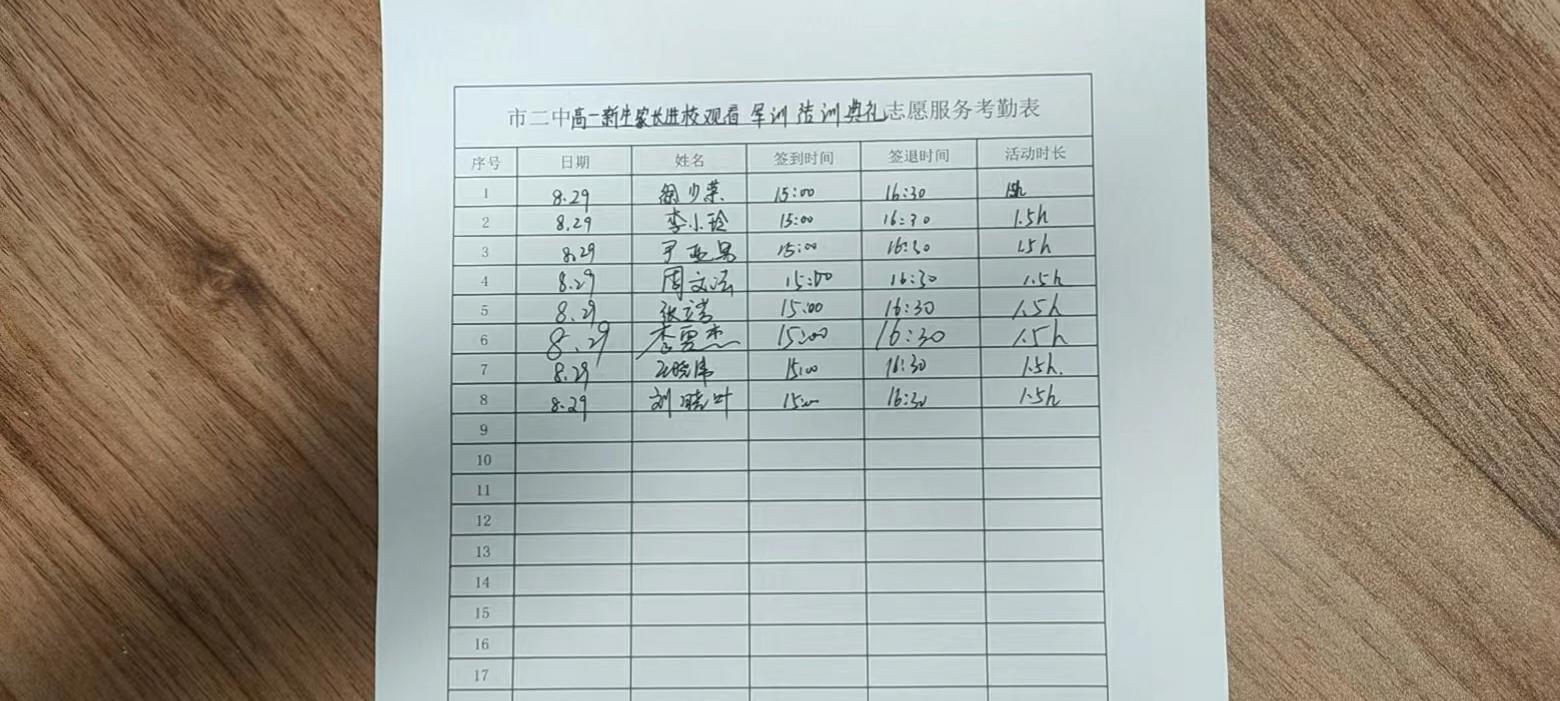 市二中高一新生家长进校观看军训结训典礼志愿服务考勤表
序号 日期 姓名 签到时间 签退时间 活动时长
1 8.29 少荣 15:00 16:30
2 8.29 李小玲 15:00 16:30 1.5h
3 8.29 15:00 16:30 1.5h
4 8.29 周文 15:00 16:30 1.5h
5 8.29 张 15:00 16:30 1.5h
6 8.29 李雪杰 15:00 16:30 1.5h
7 8.29 王晓伟 15:00 16:30 1.5h.
8 8.29 刘晓叶 15:00 16:30 1.5h
9
10
11
12
13
14
15
16
17